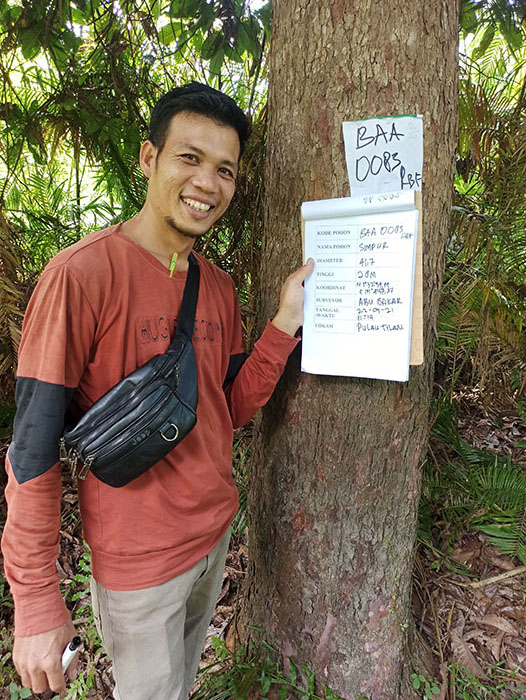 BAA
0083
RBF
KODE POHON BAA 0083 RBF
NAMA POHON SIMPUR
DIAMETER 467
TINGGI 20M
KOORDINAT
SURVEYOR ABU BAKAR
TANGGAL /WAKTU 22-09-21
11:19
LOKASI PULAU TILAN
HUGO